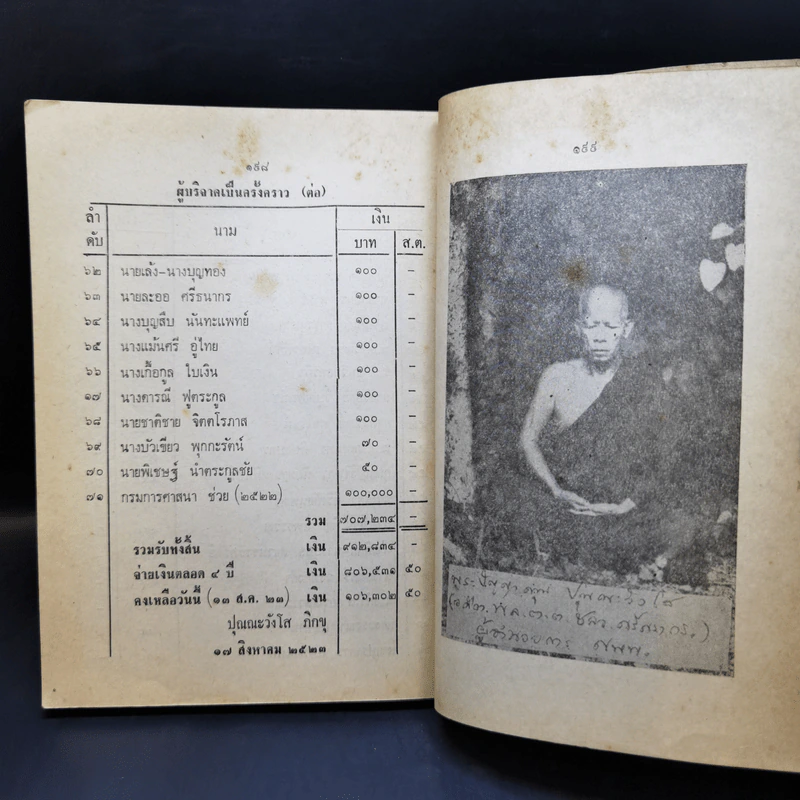 ๑๙๘
ผู้บริจาคเป็นครั้งคราว (ต่อ)
ลำดับ นาม เงิน
บาท ส.ต.
๖๒ นายเล้ง-นางบุญทอง ๑๐๐ –
๖๓ นายละออ ศรีธนากร ๑๐๐ –
๖๔ นางบุญสืบ นันทะแพทย์ ๑๐๐ –
๖๕ นางแม้นศรี อู่ไทย ๑๐๐ –
๖๖ นางเกื้อกูล ใบเงิน ๑๐๐ –
๑๗ นางดารณี ฟูตระกูล ๑๐๐ –
๖๘ นายชาติชาย จิตตโรภาส ๑๐๐ –
๖๙ นางบัวเขียว พุกกะรัตน์ ๗๐ –
๗๐ นายพิเชษฐ์ นำตระกูลชัย ๕๐ –
๗๑ กรมการศาสนา ช่วย (๒๕๒๒) ๑๐๐,๐๐๐ –
รวม ๗๐๗,๒๓๔ –
รวมรับทั้งสิ้น เงิน ๙๑๒,๘๓๔ –
จ่ายเงินตลอด ๔ ปี เงิน ๘๐๖,๕๓๑ ๕๐
คงเหลือวันนี้ (๑๓ ส.ค. ๒๓) เงิน ๑๐๖,๓๐๒ ๕๐
ปุณณะวังโส ภิกขุ
๑๗ สิงหาคม ๒๕๒๓
๑๙๙
พระ ปุณณะวังโส
ผู้อำนวยการ